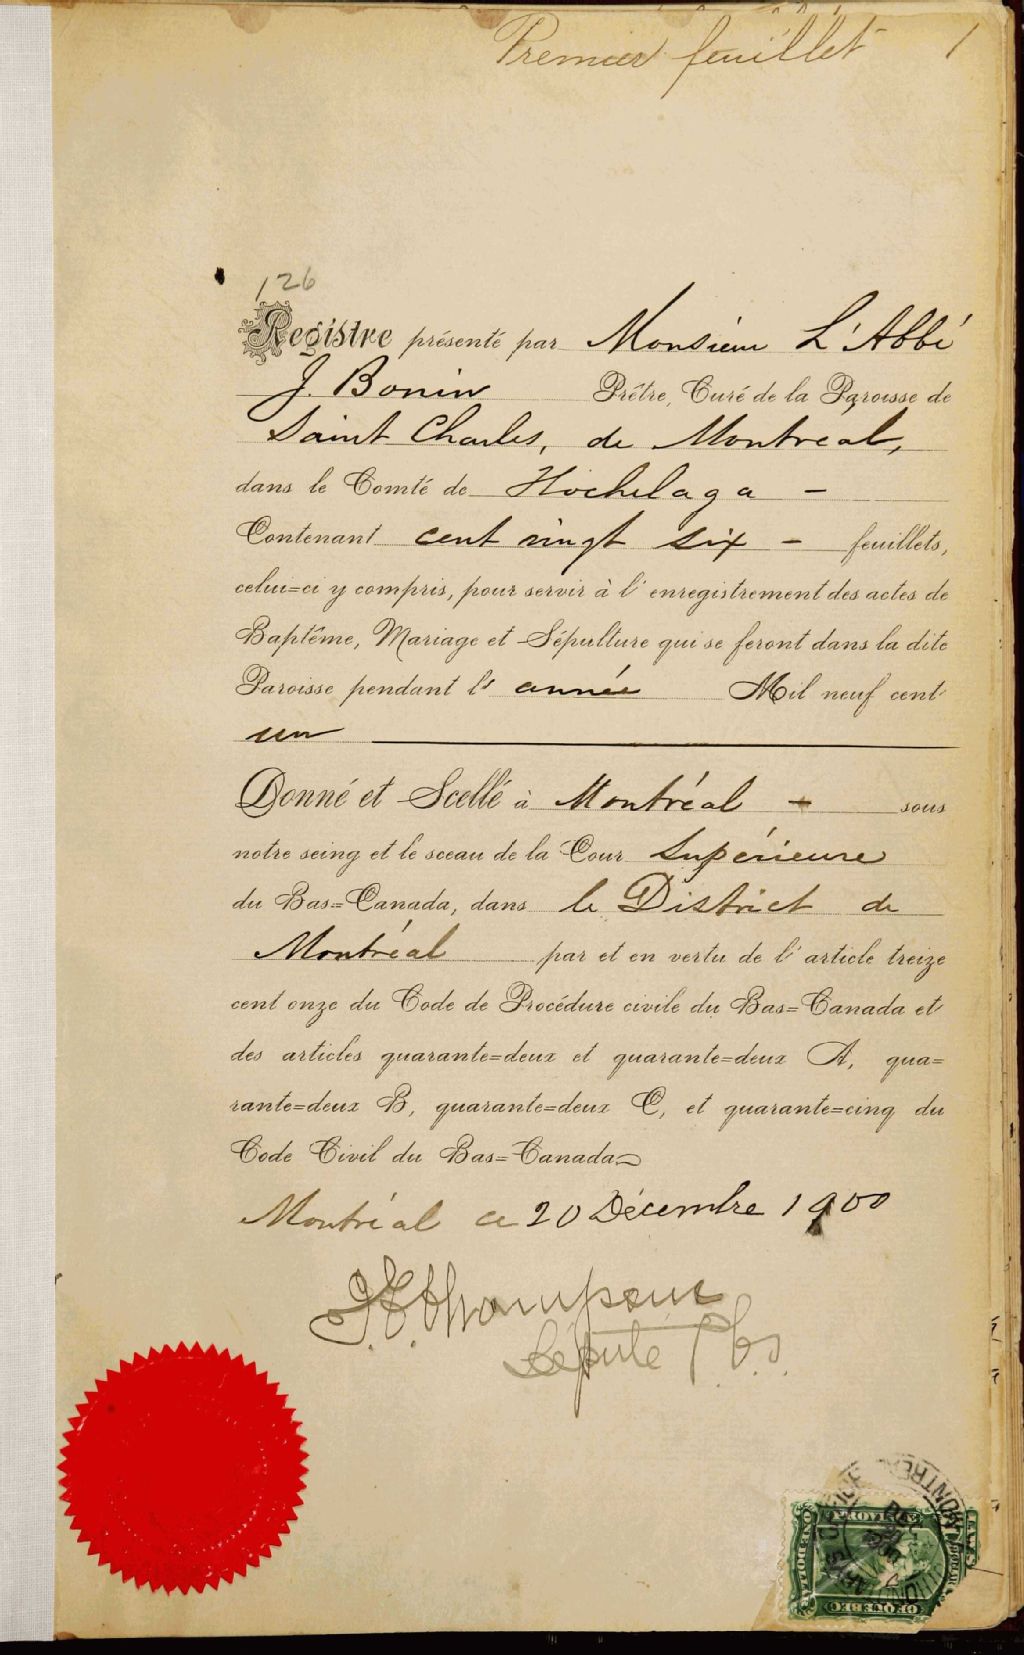 Premier feuillet 1
126
Registre présenté par Monsieur L'Abbé
J. Bonin Prêtre, Curé de la Paroisse de
Saint Charles, de Montreal,
dans le Comté de Hochelaga -
Contenant cent vingt six - feuillets,
celui=ci y compris, pour servir à l'enregistrement des actes de
Baptême, Mariage et Sépulture qui se feront dans la dite
Paroisse pendant l' année Mil neuf cent
un
Donné et Scellé à Montréal - sous
notre seing et le sceau de la Cour Supérieure
du Bas=Canada, dans le District de
Montréal par et en vertu de l'article treize
cent onze du Code de Procédure civile du Bas=Canada et
des articles quarante=deux et quarante=deux A, qua=
rante=deux B, quarante=deux C, et quarante=cinq du
Code Civil du Bas=Canada
Montréal ce 20 Décembre 1900
Député P.C.S.
MONTREAL
QUEBEC